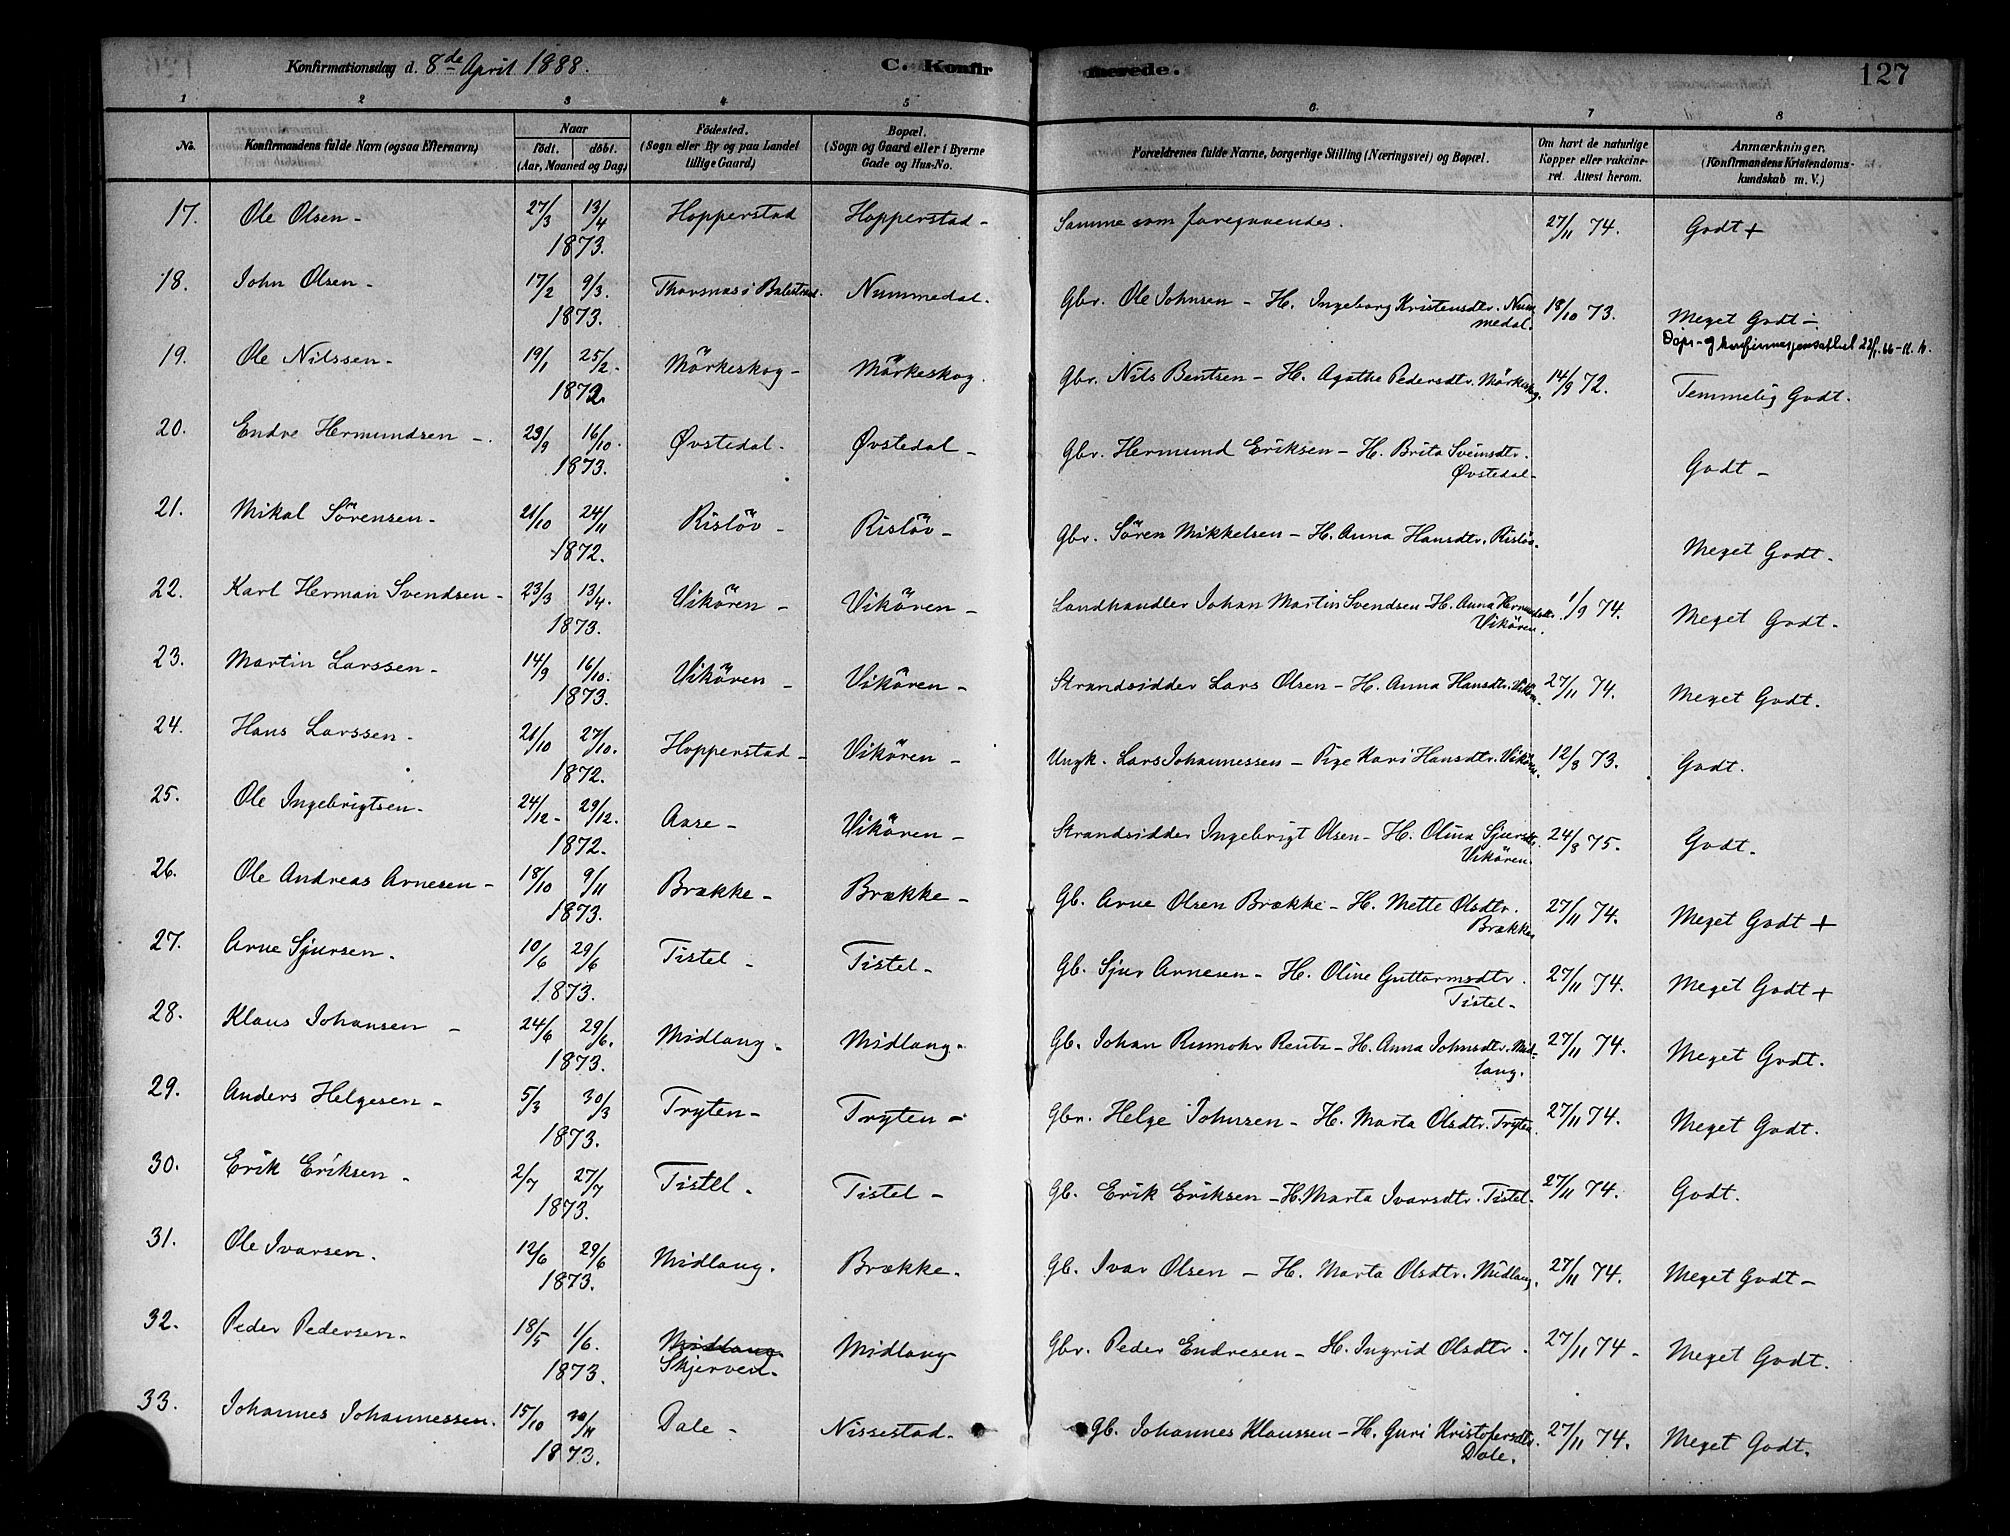 Konfirmationsdag d. 8de April 1888. C. Konfirmerede. 127
1 2 3 4 5 6 7 8
No. Konfirmandens fulde Navn (ogsaa Efternavn) Naar født. døbt. (Aar, Maaned og Dag) Fødested. (Sogn eller By og paa Landet tillige Gaard) Bopæl. (Sogn og Gaard eller i Byerne Gade og Hus-No. Forældrenes fulde Navne, borgerlige Stilling (Næringsvei) og Bopæl. Om havt de naturlige Kopper eller vakcineret. Attest herom. Anmærkninger. (Konfirmandens Kristendomskundskab m. V.)
17. Ole Olsen - 27/3 13/4 1873. Hopperstad Hopperstad - Samme som foregaaendes. 27/11 74. Godt +
18. John Olsen - 17/2 9/3. 1873. Thorsnæs i Balestrand. Nummedal. Gbr. Ole Johnsen - H. Ingeborg Kristensdtr. Nummedal. 18/10 73. Meget Godt -
19. Ole Nilssen - 19/1 25/2. 1872. Mörkeskog - Mörkeskog. Gbr. Nils Bentsen - H. Agathe Pedersdtr. Mörkeskog. 14/9 72. Temmelig Godt.
20. Endre Hermundsen - 23/9 16/10. 1873. Øvstedal - Øvstedal - Gbr. Hermund Eriksen - H. Brita Sveinsdtr. Øvstedal - Godt -
21. Mikal Sörensen - 21/10 24/11 1872. Rislöv - Rislöv - Gbr. Sören Mikkelsen - H. Anna Hansdtr. Rislöv. Meget Godt.
22. Karl Herman Svendsen - 23/3 13/4. 1873. Vikören - Vikören - Landhandler Johan Martin Svendsen - H. Anna Vikören. 1/9 74. Meget Godt.
23. Martin Larssen - 14/9 16/10. 1873. Vikören - Vikören - Strandsidder Lars Olsen - H. Anna Hansdtr. Vikören. 27/11 74. Meget Godt.
24. Hans Larssen - 21/10 27/10. 1872. Hopperstad - Vikören - Ungk. Lars Johannessen - Pige Kari Hansdtr. Vikören. 12/8 73. Godt.
25. Ole Ingebrigtsen - 24/12 - 29/12. 1872. Aase - Vikören - Strandsidder Ingebrigt Olsen - H. Olina Sjursdtr. Vikören. 24/8 75. Godt.
26. Ole Andreas Arnesen - 18/10 9/11 1873. Brække - Brække - Gb. Arne Olsen Brække - H. Mette Olsdtr. Brække 27/11 74. Meget Godt +
27. Arne Sjursen - 10/6 29/6 1873. Tistel - Tistel - Gb. Sjur Arnesen - H. Oline Guttormsdtr. Tistel - 27/11 74. Meget Godt +
28. Klaus Johansen - 24/6 29/6. 1873. Midlang - Midlang - Gb. Johan Rumohr Rentz - H. Anna Johnsdtr. Midlang. 27/11 74. Meget Godt.
29. Anders Helgesen - 5/3 30/3 1873. Tryten - Tryten - Gbr. Helge Johnsen - H. Marta Olsdtr. Tryten 27/11 74. Meget Godt.
30. Erik Eriksen - 2/7 27/7 1873. Tistel - Tistel - Gb. Erik Eriksen - H. Marta Ivarsdtr. Tistel - 27/11 74. Godt.
31. Ole Ivarsen. 12/6 29/6 1873. Midlang. Brække. Gb. Ivar Olsen - H. Marta Olsdtr. Midlang. 27/11 74. Meget Godt -
32. Peder Pedersen - 18/5 1/6. 1873. Midlang Skjerven. Midlang Gbr. Peder Endresen - H. Ingrid Olsdtr. 27/11 74 - Meget Godt.
33. Johannes Johannessen. 15/10 /11 1873. Dale - Nissestad. Gb. Johannes Klaussen - H. Guri Kristofersdtr. Dale. 27/11 74. Meget Godt.